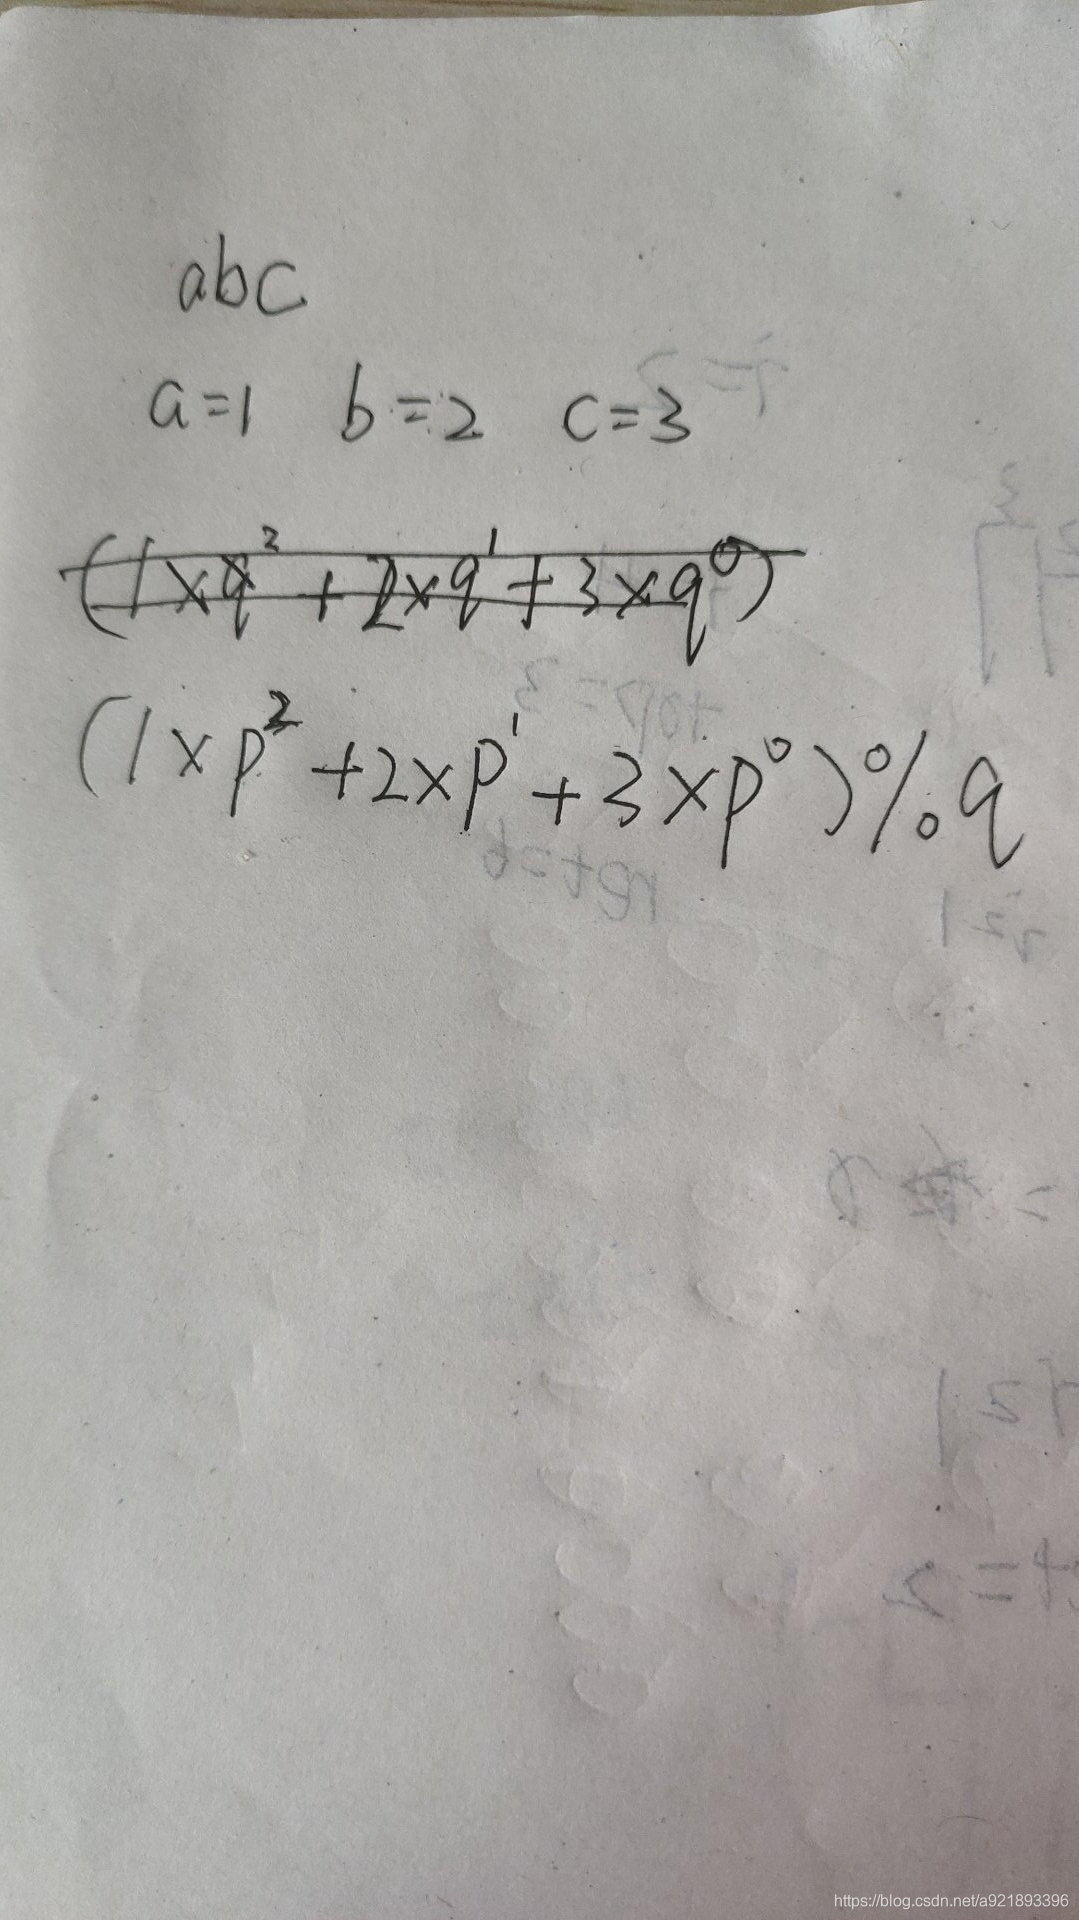 abc
a=1 b=2 c=3
(1×q² + 2×q¹ + 3×q⁰)
(1×p² + 2×p¹ + 3×p⁰)%q
https://blog.csdn.net/a921893396